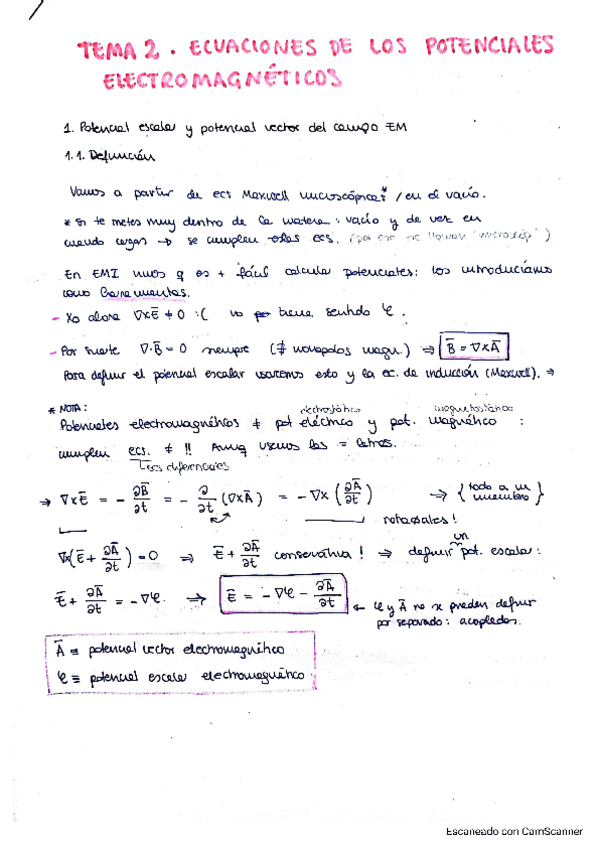 TEMA 2. ECUACIONES DE LOS POTENCIALES
ELECTROMAGNÉTICOS
1. Potencial escalar y potencial vector del campo EM
1.1. Definición
Vamos a partir de ecs Maxwell microscópicas* / en el vacío.
* Si te metes muy dentro de la materia: vacío y de vez en
cuando cargas → se cumplen estas ecs. (por eso se llaman "microscóp")
En EMI vimos q es + fácil calcular potenciales: los introducíamos
como herramientas.
- Xo ahora ∇×Ē ≠ 0 :( no tiene sentido φ.
- Por suerte ∇·B̄ = 0 siempre (∄ monopolos magn.) ⇒ B̄ = ∇×Ā
Para definir el potencial escalar usaremos esto y la ec. de inducción (Maxwell). ⇒
* NOTA:
electrostático magnetostático
Potenciales electromagnéticos ≠ pot eléctrico y pot. magnético :
cumplen ecs. ≠ !! Aunq usemos las = letras.
Ecs diferenciales
→ ∇×Ē = - ∂B̄/∂t = - ∂/∂t (∇×Ā) = -∇× (∂Ā/∂t) → {todo a un miembro}
rotacionales!
∇×(Ē + ∂Ā/∂t) = 0 ⇒ Ē + ∂Ā/∂t conservativa! ⇒ definir un pot. escalar:
Ē + ∂Ā/∂t = -∇φ. ⇒ Ē = -∇φ - ∂Ā/∂t ← φ y Ā no se pueden definir
por separado: acoplados.
Ā ≡ potencial vector electromagnético
φ ≡ potencial escalar electromagnético.
Escaneado con CamScanner